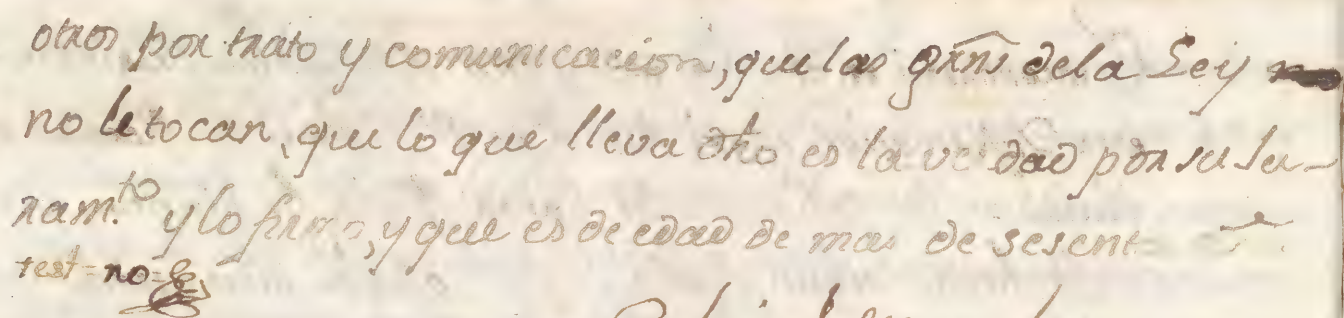 otros por trato y comunicacion, que las grns dela Ley no
no le tocan, que lo que lleva dho es la verdad por su Ju-
ram.to y lo firmo, y que es de edad de mas de sesent
test = no =